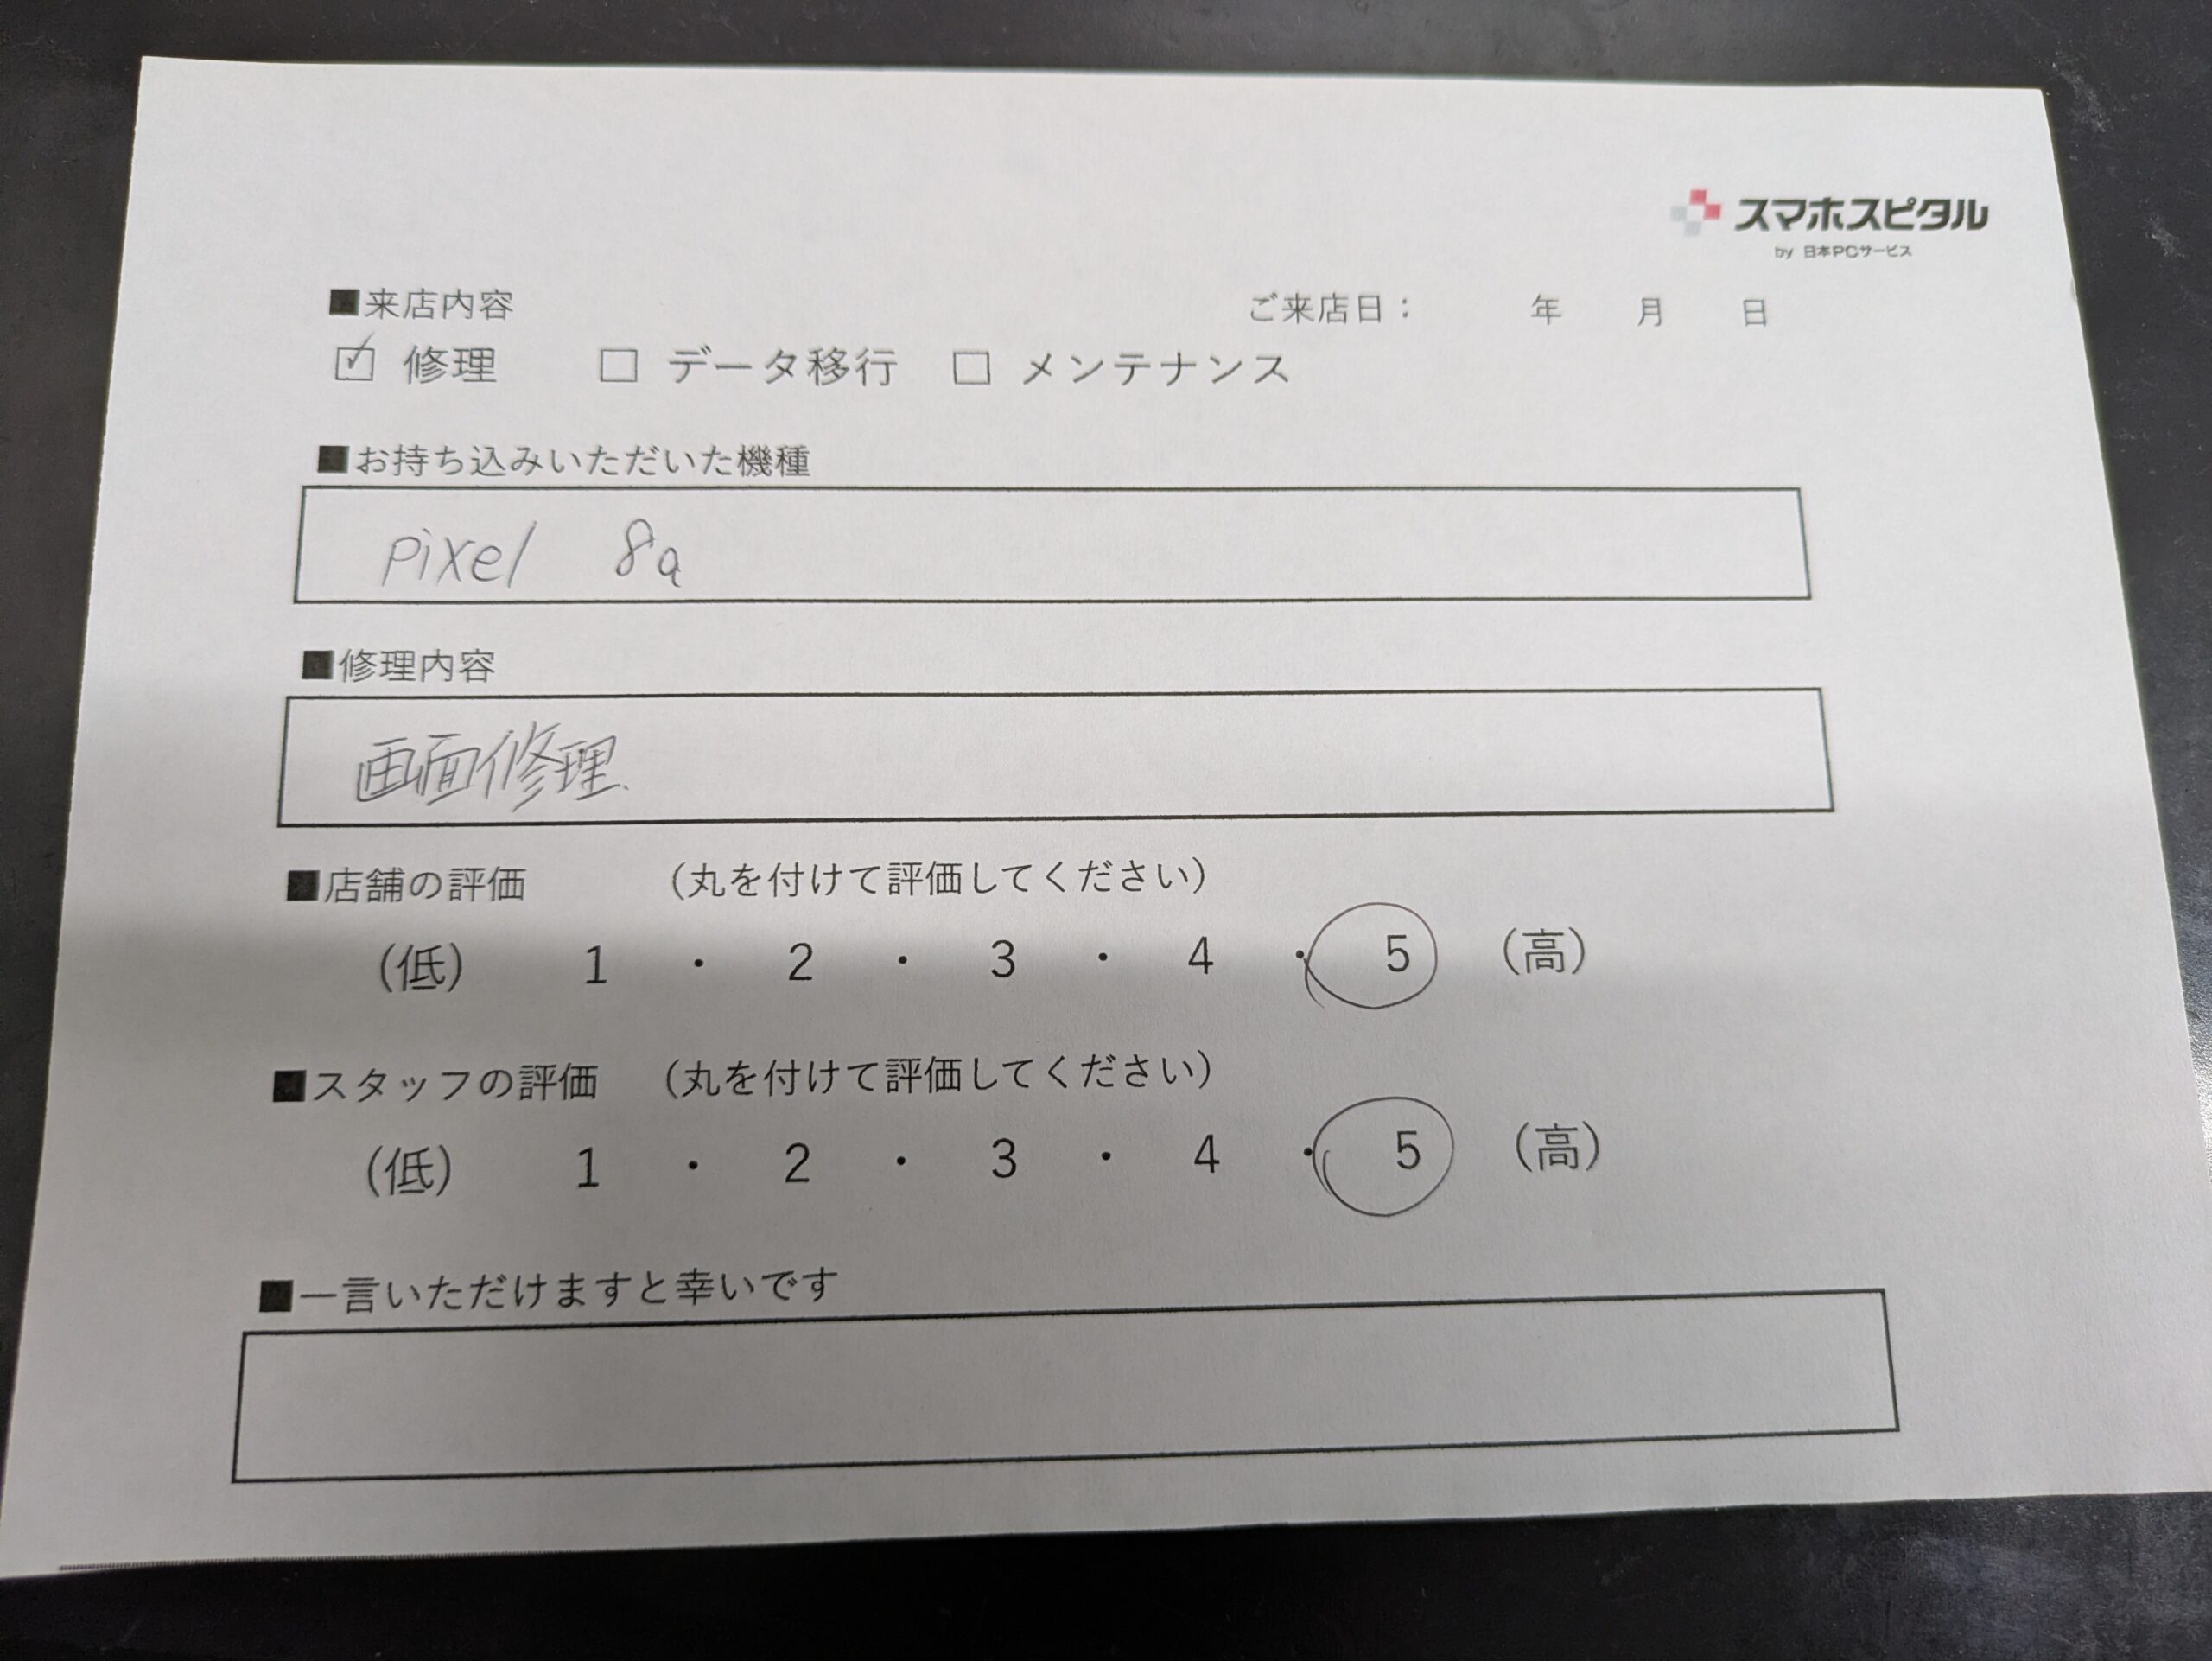 スマホスピタル
by 日本PCサービス
■来店内容 ご来店日： 年 月 日
☑ 修理 □ データ移行 □ メンテナンス
■お持ち込みいただいた機種
pixel 8a
■修理内容
画面修理.
■店舗の評価 （丸を付けて評価してください）
（低） 1 ・ 2 ・ 3 ・ 4 ・ 5 （高）
■スタッフの評価 （丸を付けて評価してください）
（低） 1 ・ 2 ・ 3 ・ 4 ・ 5 （高）
■一言いただけますと幸いです